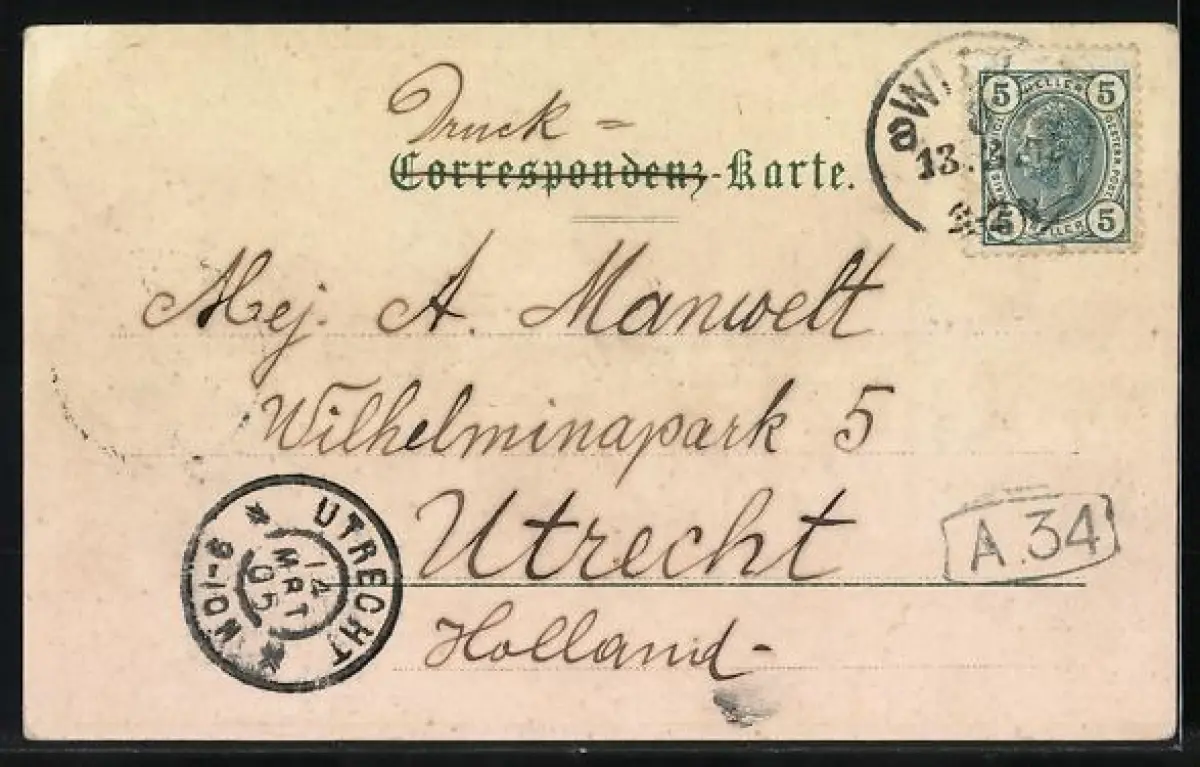 Druck =
Correspondenz-Karte.
WI
13.
5 HELLER 5
5 HELLER 5
Mej. A. Manwelt
Wilhelminapark 5
Utrecht
A.34
Holland-
UTRECHT
14
MRT
05
9-10V